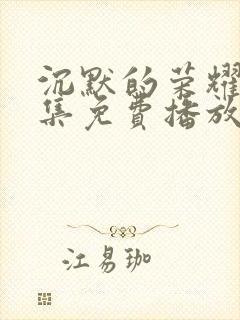 沉默的荣耀
集免费播放
江易珈